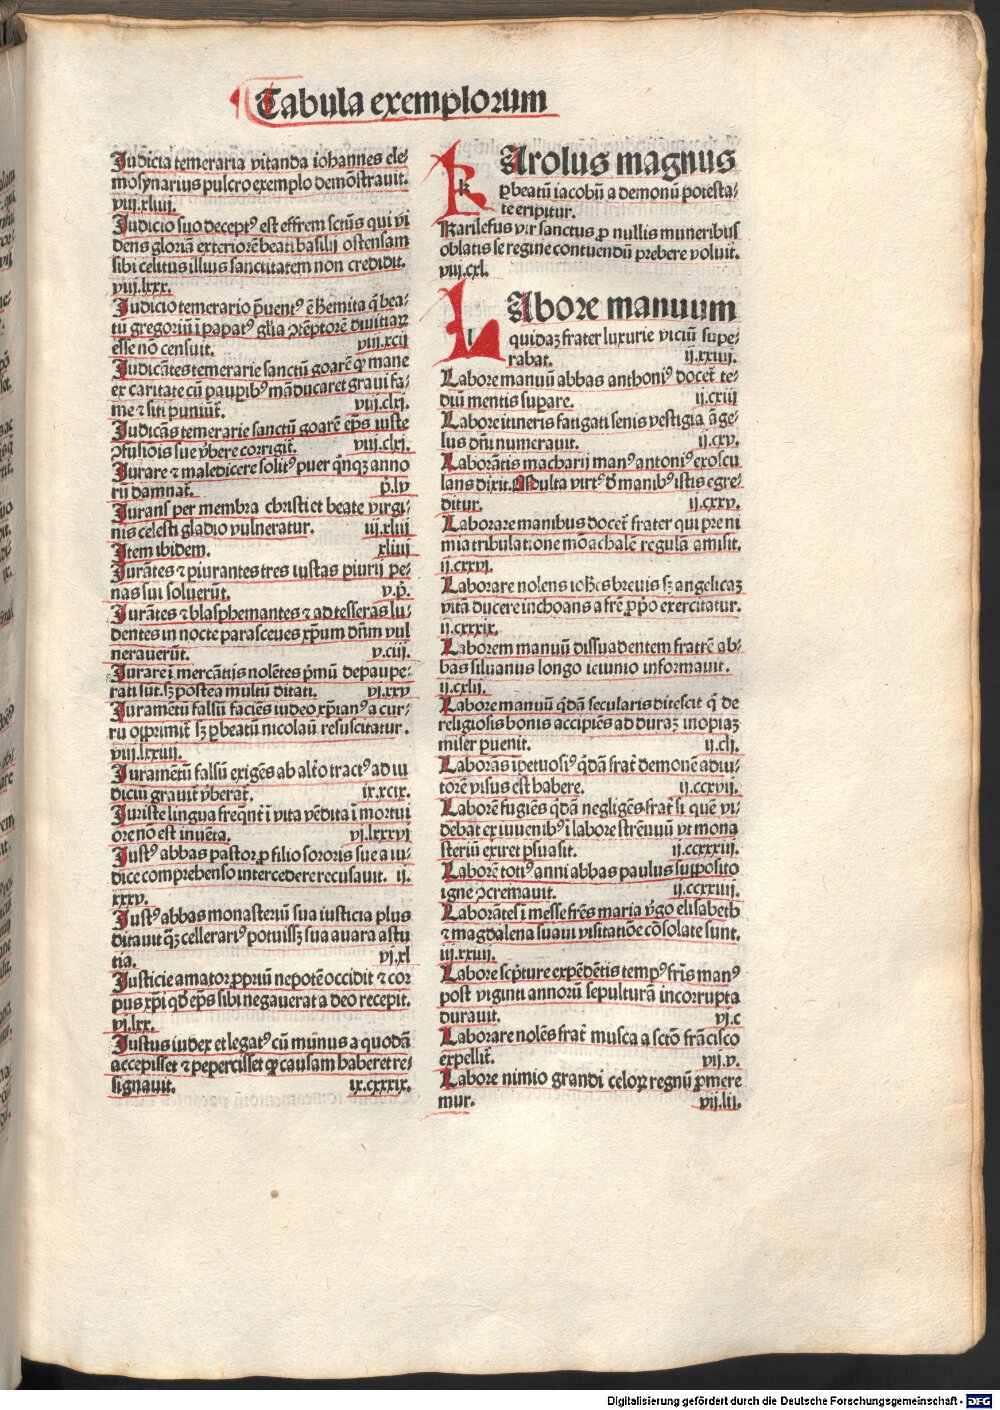 Tabula exemplorum
Judicia temeraria vitanda iohannes ele-
mosynarius pulcro exemplo demõstrauit.
viii.xliiii.
Judicio suo deceptꝰ est effrem sctũs qui vi
dens gloriã exteriorẽ beati basilij ostensam
sibi celitus illius sanctitatem non credidit.
viii.lxxx.
Judicio temerario p̃uentꝰ ẽ heremita q̃ bea-
tu gregoriũ ĩ papatꝰ gl̃ia ꝯrẽptorẽ diuitiaꝝ
esse nõ censuit. viii.xcii
Judicãtes temerarie sanctũ goarẽ qꝛ mane
ex caritate cũ paupibꝰ mãducaret graui fa-
me ⁊ siti puniut̃. viii.clxi.
Judicãs temerarie sanctũ goarẽ ep̃s iuste
ꝯfusiõis sue ṽbere corrigit̃. viii.clxi.
Jurare ⁊ maledicere solitꝰ puer q̃nqꝫ anno
rũ damnat̃. p̃.lv
Jurans per membra christi et beate virgi-
nis celesti gladio vulneratur. iii.xliii
Item ibidem. xliiii
Jurãtes ⁊ piurantes tres iustas piurij pe-
nas sui soluerũt. v.p̃.
Jurãtes ⁊ blasphemantes ⁊ ad tesseras lu-
dentes in nocte parasceues xp̃um dñm vul
nerauerũt. v.ciii.
Jurare ĩ mercãtiis nolẽtes p̃mũ depaupe-
rati sũt. sꝫ postea multũ ditati. vi.xxv
Juramẽtũ falsũ faciẽs iudeo xp̃ianꝰ a cur-
ru opprimit̃ sꝫ ꝑ beatũ nicolaũ resuscitatur.
viii.lxxiii.
Juramẽtũ falsũ exigẽs ab alt̃o tractꝰ ad iu
diciũ grauit̃ ṽberat̃. ix.xcix.
Juriste lingua freq̃nt̃ ĩ vita vẽdita ĩ mortui
ore nõ est inuẽta. vi.lxxxvi
Justꝰ abbas pastor ꝓ filio sororis sue a iu-
dice comprehenso intercedere recusauit. ii.
xxxv.
Justꝰ abbas monasteriũ sua iusticia plus
ditauit qꝫ cellerariꝰ potuissꝫ sua auara astu
tia. vi.xl
Justicie amator ꝓpriũ nepotẽ occidit ⁊ cor
pus xp̃i qd̃ ep̃s sibi negauerat a deo recepit.
vi.lxx.
Justus iudex et legatꝰ cũ munus a quodã
accepisset ⁊ pepercisset qꝛ causam haberet re-
signauit. ix.cxxxix.
k
KArolus magnus
ꝑ beatũ iacobũ a demonũ potesta-
te eripitur.
Karilefus vir sanctus ꝓ nullis muneribus
oblatis se regine contuendũ prebere voluit.
viii.cxl.
l
LAbore manuum
quidaꝫ frater luxurie viciũ supe-
rabat. ii.xxiiii.
Labore manuũ abbas anthoniꝰ docet̃ te-
diũ mentis supare. ii.cxiii
Labore itineris fatigati senis vestigia ãge-
lus dñi numerauit. ii.cxv.
Laborãtis macharij manꝰ antoniꝰ exoscu
lans dixit. Multa virtꝰ d̃ manibꝰ istis egre-
ditur. ii.cxxv.
Laborare manibus docet̃ frater qui pre ni
mia tribulatione mõachalẽ regulã amisit.
ii.cxxvi.
Laborare nolens ioh̃es breuis sꝫ angelicaꝫ
vitã ducere inchoans a fr̃e ꝓp̃o exercitatur.
ii.cxxxix.
Laborem manuũ dissuadentem fratrẽ ab-
bas siluanus longo ieiunio informauit.
ii.cxlii.
Labore manuũ q̃dã secularis ditescit q̃ de
religiosis bonis accipiẽs ad duraꝫ inopiaꝫ
miser puenit. ii.cli.
Laborãs ĩpetuosiꝰ q̃dã frat̃ demonẽ adiu-
torẽ visus est habere. ii.ccxvii.
Laborẽ fugiẽs q̃dã negligẽs frat̃ si quẽ vi-
debat ex iuuenibꝰ ĩ labore strẽnuũ vt mona
steriũ exiret psuasit. ii.ccxxxiii.
Laborẽ totiꝰ anni abbas paulus supposito
igne ꝯcremauit. ii.ccxxiiii.
Laborãtes ĩ messe fr̃es maria ṽgo elisabeth
⁊ magdalena suaui visitatiõe cõsolate sunt.
iii.xxiii.
Labore scp̃ture expẽdẽtis tempꝰ fr̃is manꝰ
post viginti annorũ sepulturã incorrupta
durauit. vi.c
Laborare nolẽs frat̃ musca a sctõ frãcisco
expellit̃. vii.v.
Labore nimio grandi celoꝝ regnũ ꝓmere
mur. vii.lii.
Digitalisierung gefördert durch die Deutsche Forschungsgemeinschaft - DFG